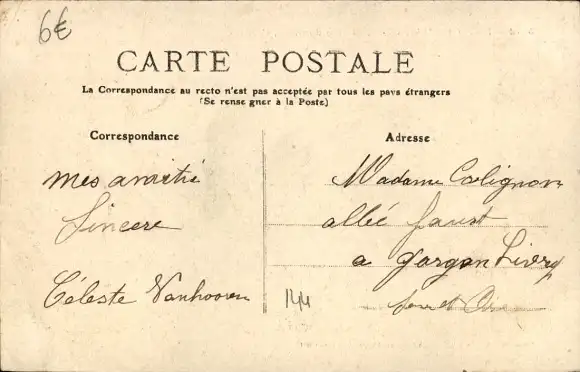 6€
CARTE POSTALE
La Correspondance au recto n'est pas acceptée par tous les pays étrangers
(Se rense gner à la Poste)
Correspondance
Adresse
mes amitié
Sincere
Céleste Vanhooren
Madame Colignon
allée faust
a gargan Livry
seine et Oise
144